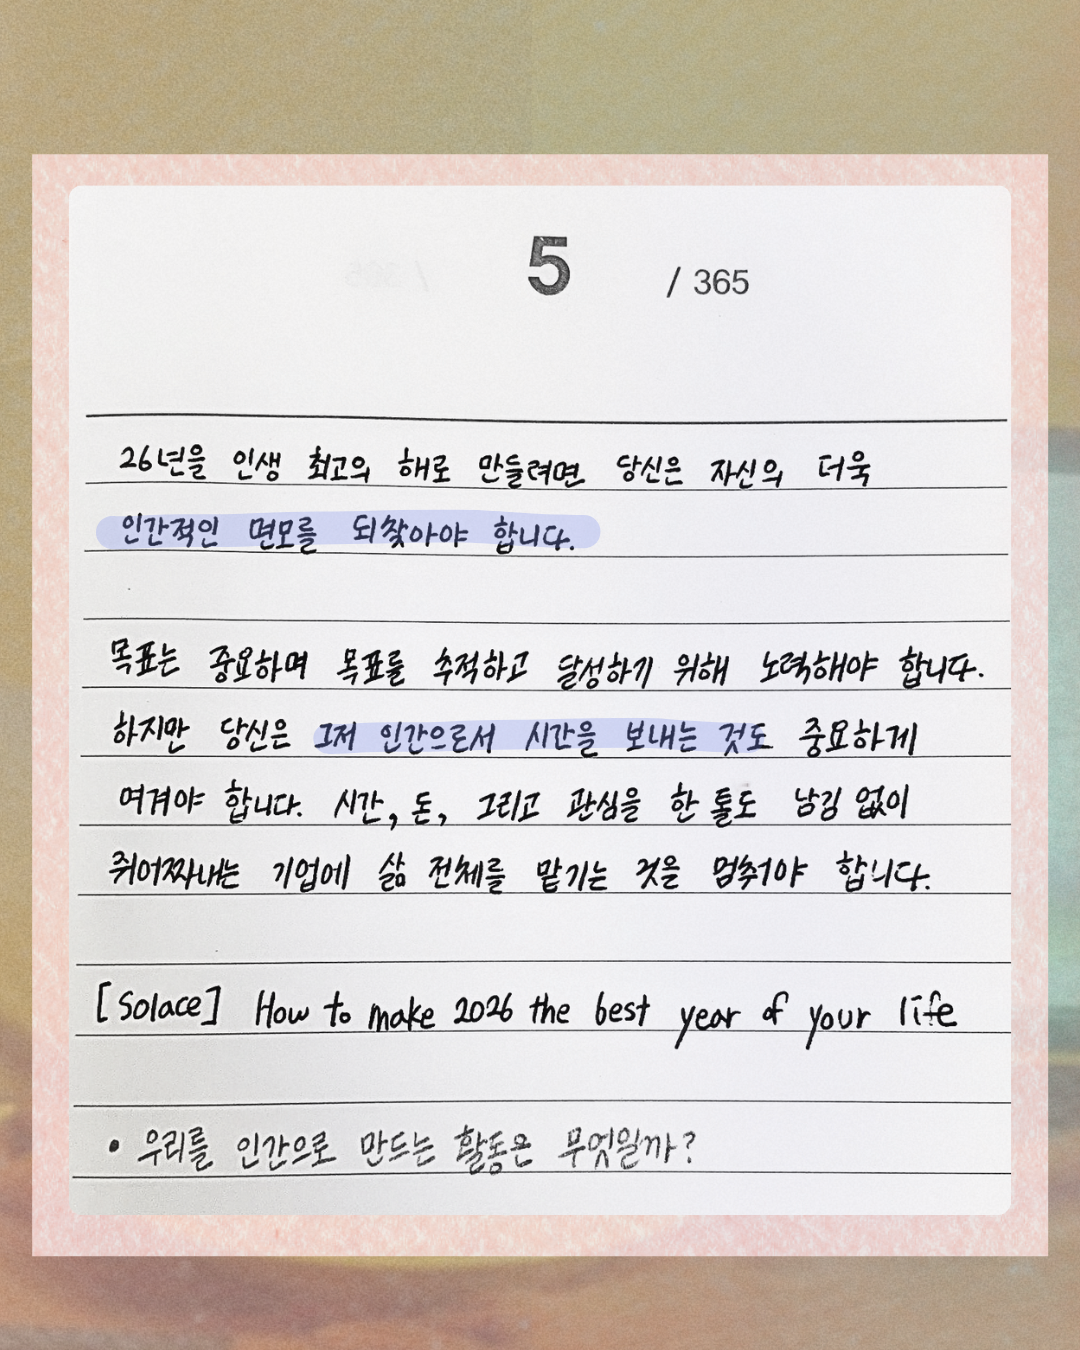 5 / 365
26년을 인생 최고의 해로 만들려면 당신은 자신의 더욱
인간적인 면모를 되찾아야 합니다.
목표는 중요하며 목표를 추적하고 달성하기 위해 노력해야 합니다.
하지만 당신은 그저 인간으로서 시간을 보내는 것도 중요하게
여겨야 합니다. 시간, 돈, 그리고 관심을 한 톨도 남김 없이
쥐어짜내는 기업에 삶 전체를 맡기는 것을 멈춰야 합니다.
[Solace] How to make 2026 the best year of your life
• 우리를 인간으로 만드는 활동은 무엇일까?